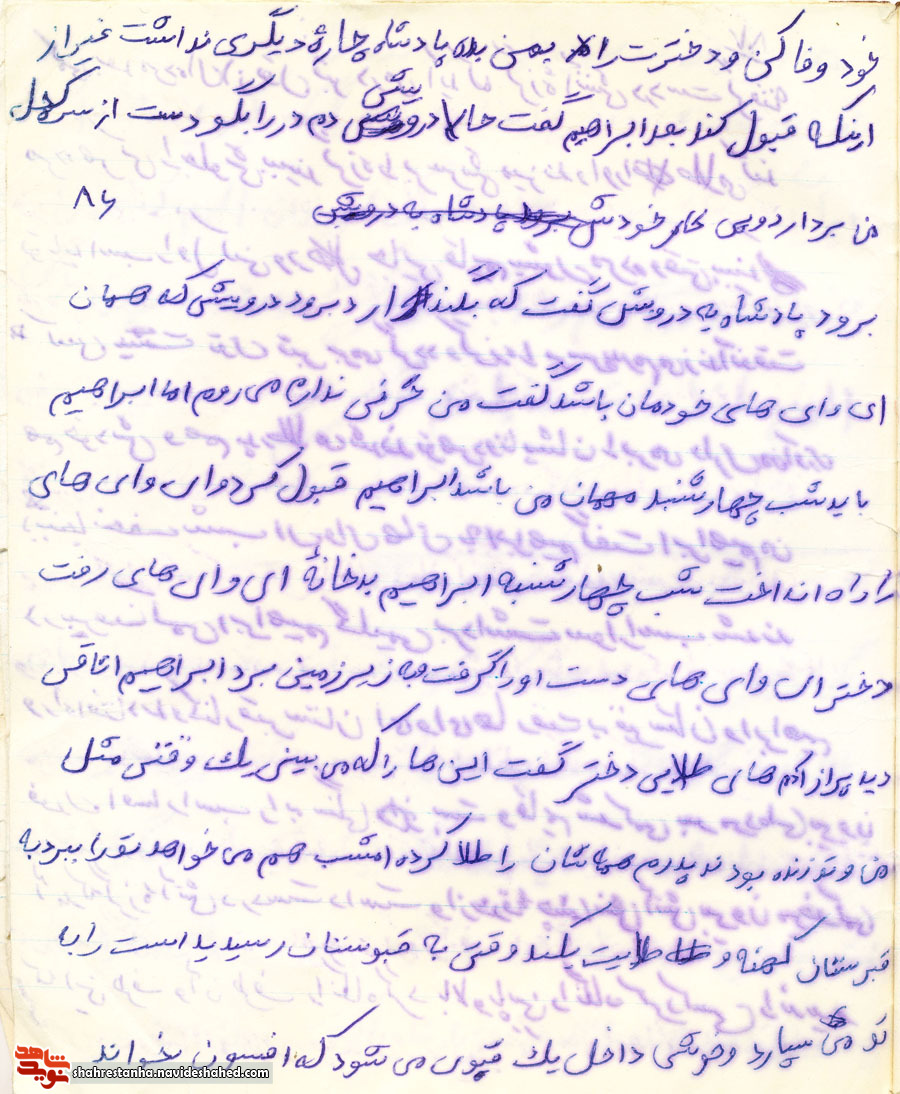 خود وفا کن و دخترت را بمن بده پادشاه چارۀ دیگری نداشت غیر از
اینکه قبول کند بعد ابراهیم گفت حالا درویش دم در را بگو دست از سر کچل
من بردارد وپی کار خودش
۸۶
برود پادشاه به درویش گفت که بگذارد برود درویشی که همان
ای وای های خودمان باشد گفت من حرفی ندارم می روم اما ابراهیم
باید شب چهارشنبه مهمان من باشد ابراهیم قبول کرد و ای وای های
را راه انداخت شب چهارشنبه ابراهیم به خانۀ ای وای های رفت
دختر ای وای های دست او را گرفت و به زیرزمینی برد ابراهیم اتاقی
دید پر از آدم های طلایی دختر گفت این ها را که می بینی یك وقتی مثل
من و تو زنده بودند پدرم همه شان را طلا کرده امشب هم می خواهد تو را ببرد به
قبرستان کهنه و طلایت بکند وقتی به قبرستان رسیدید است را به
تو می سپارد و خودش داخل یك قبری می شود که افسون بخواند
شاهد
نوید
shahrestanha.navideshahed.com